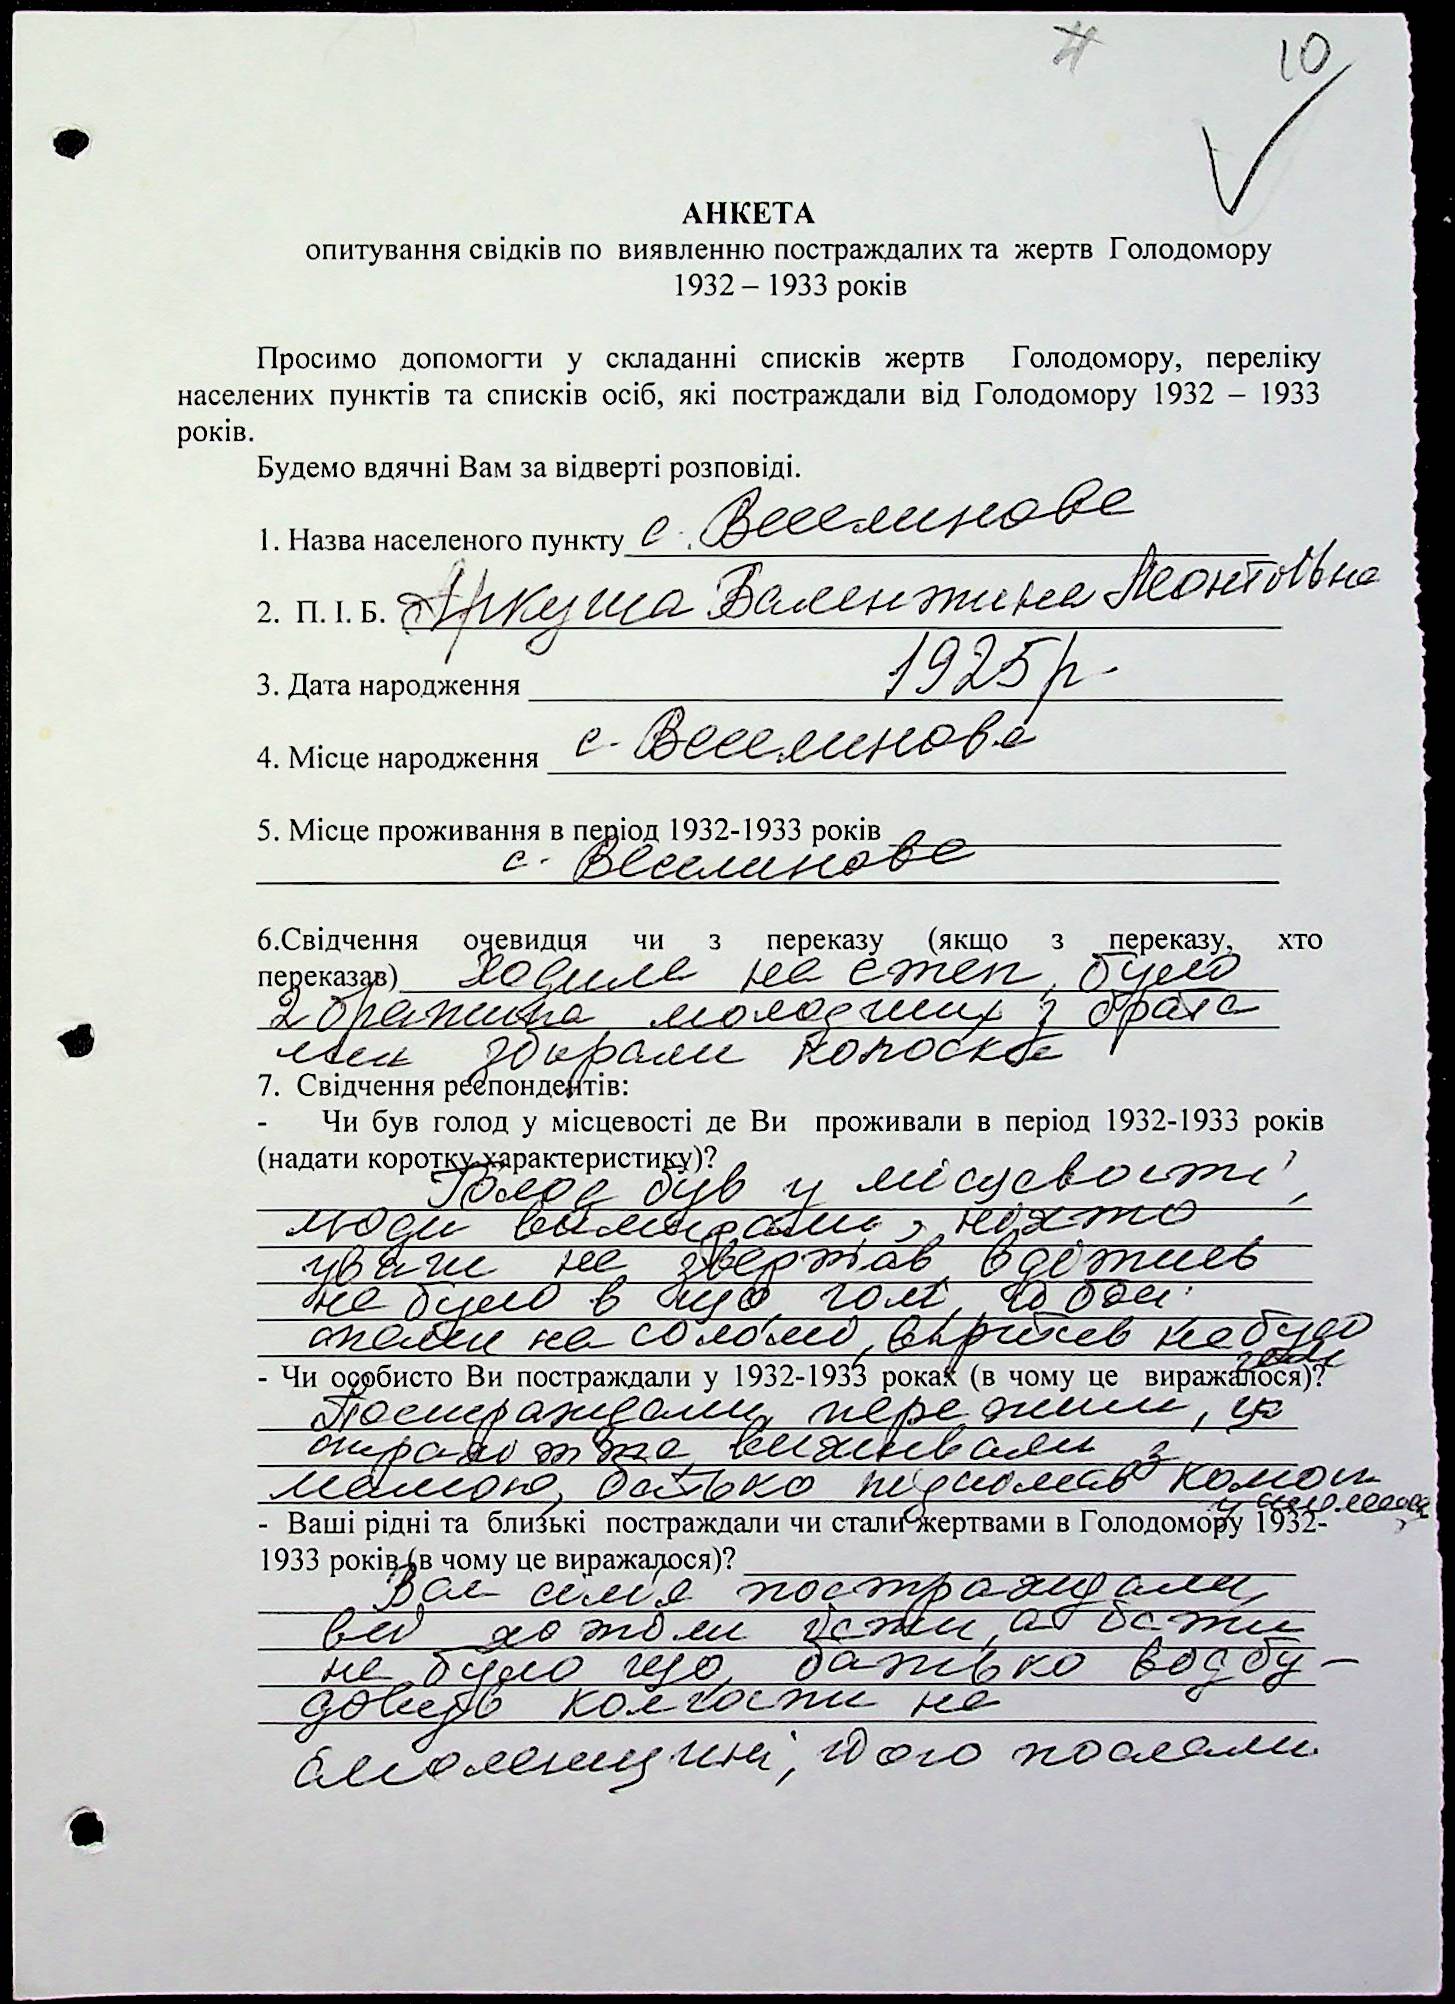 10
АНКЕТА
опитування свідків по виявленню постраждалих та жертв Голодомору
1932 – 1933 років
Просимо допомогти у складанні списків жертв Голодомору, переліку
населених пунктів та списків осіб, які постраждали від Голодомору 1932 – 1933
років.
Будемо вдячні Вам за відверті розповіді.
1. Назва населеного пункту с. Веселинове
2. П. І. Б. Аркуша Валентина Леонтіївна
3. Дата народження 1925 р.
4. Місце народження с. Веселинове
5. Місце проживання в період 1932-1933 років
с. Веселинове
6.Свідчення очевидця чи з переказу (якщо з переказу, хто
переказав) Ходила на степ, було
2 братика молодших з брата
ми збирали колоски
7. Свідчення респондентів:
- Чи був голод у місцевості де Ви проживали в період 1932-1933 років
(надати коротку характеристику)?
Голод був у місцевості,
люди вимирали, ніхто
уваги не звертав, вдітись
не було в що, голі, босі
спали на соломі, вкритись не було
чим
- Чи особисто Ви постраждали у 1932-1933 роках (в чому це виражалося)?
Постраждали, пережили, це
страхіття, виживали з
мамою, батько
- Ваші рідні та близькі постраждали чи стали жертвами в Голодомору 1932-
1933 років (в чому це виражалося)?
Вся сім'я постраждали,
всі хотіли їсти, а їсти
не було що, батько відбу-
довував колгоспи на
Смоленщині, його послали